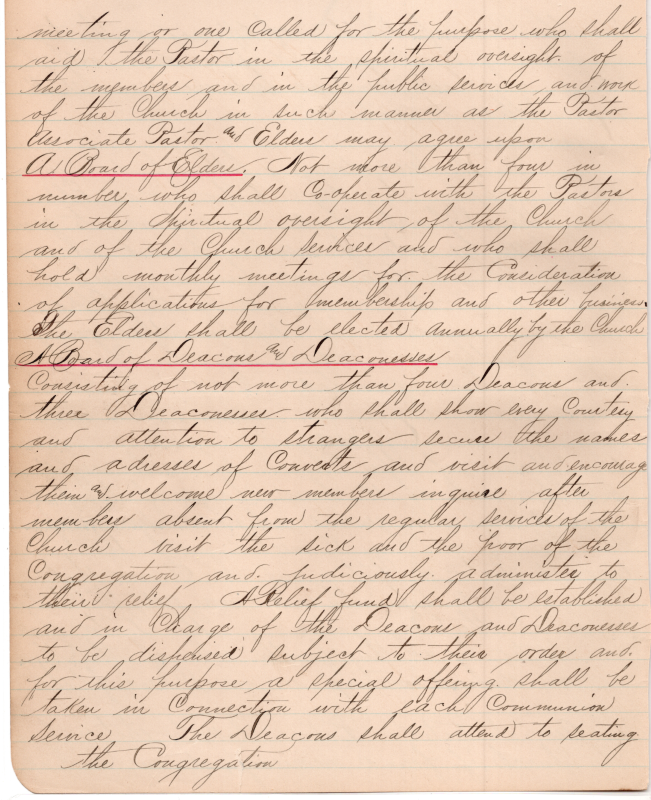 meeting or one called for the purpose who shall
aid the Pastor in the spiritual oversight of
the members and in the public services and work
of the Church in such manner as the Pastor
Associate Pastor and Elders may agree upon
A Board of Elders. Not more than four in
number who shall Co-operate with the Pastors
in the Spiritual oversight of the Church
and of the Church Services and who shall
hold monthly meetings for the Consideration
of applications for membership and other business.
The Elders shall be elected annually by the Church
A Board of Deacons and Deaconesses
Consisting of not more than four Deacons and
three Deaconesses who shall show every Courtesy
and attention to strangers secure the names
and adresses of Converts and visit and encourage
them and welcome new members inquire after
members absent from the regular services of the
Church visit the sick and the poor of the
Congregation and judiciously administer to
their relief A Relief fund shall be established
and in Charge of the Deacons and Deaconesses
to be dispensed subject to their order and
for this purpose a special offering shall be
taken in Connection with each Communion
Service The Deacons shall attend to seating
the Congregation